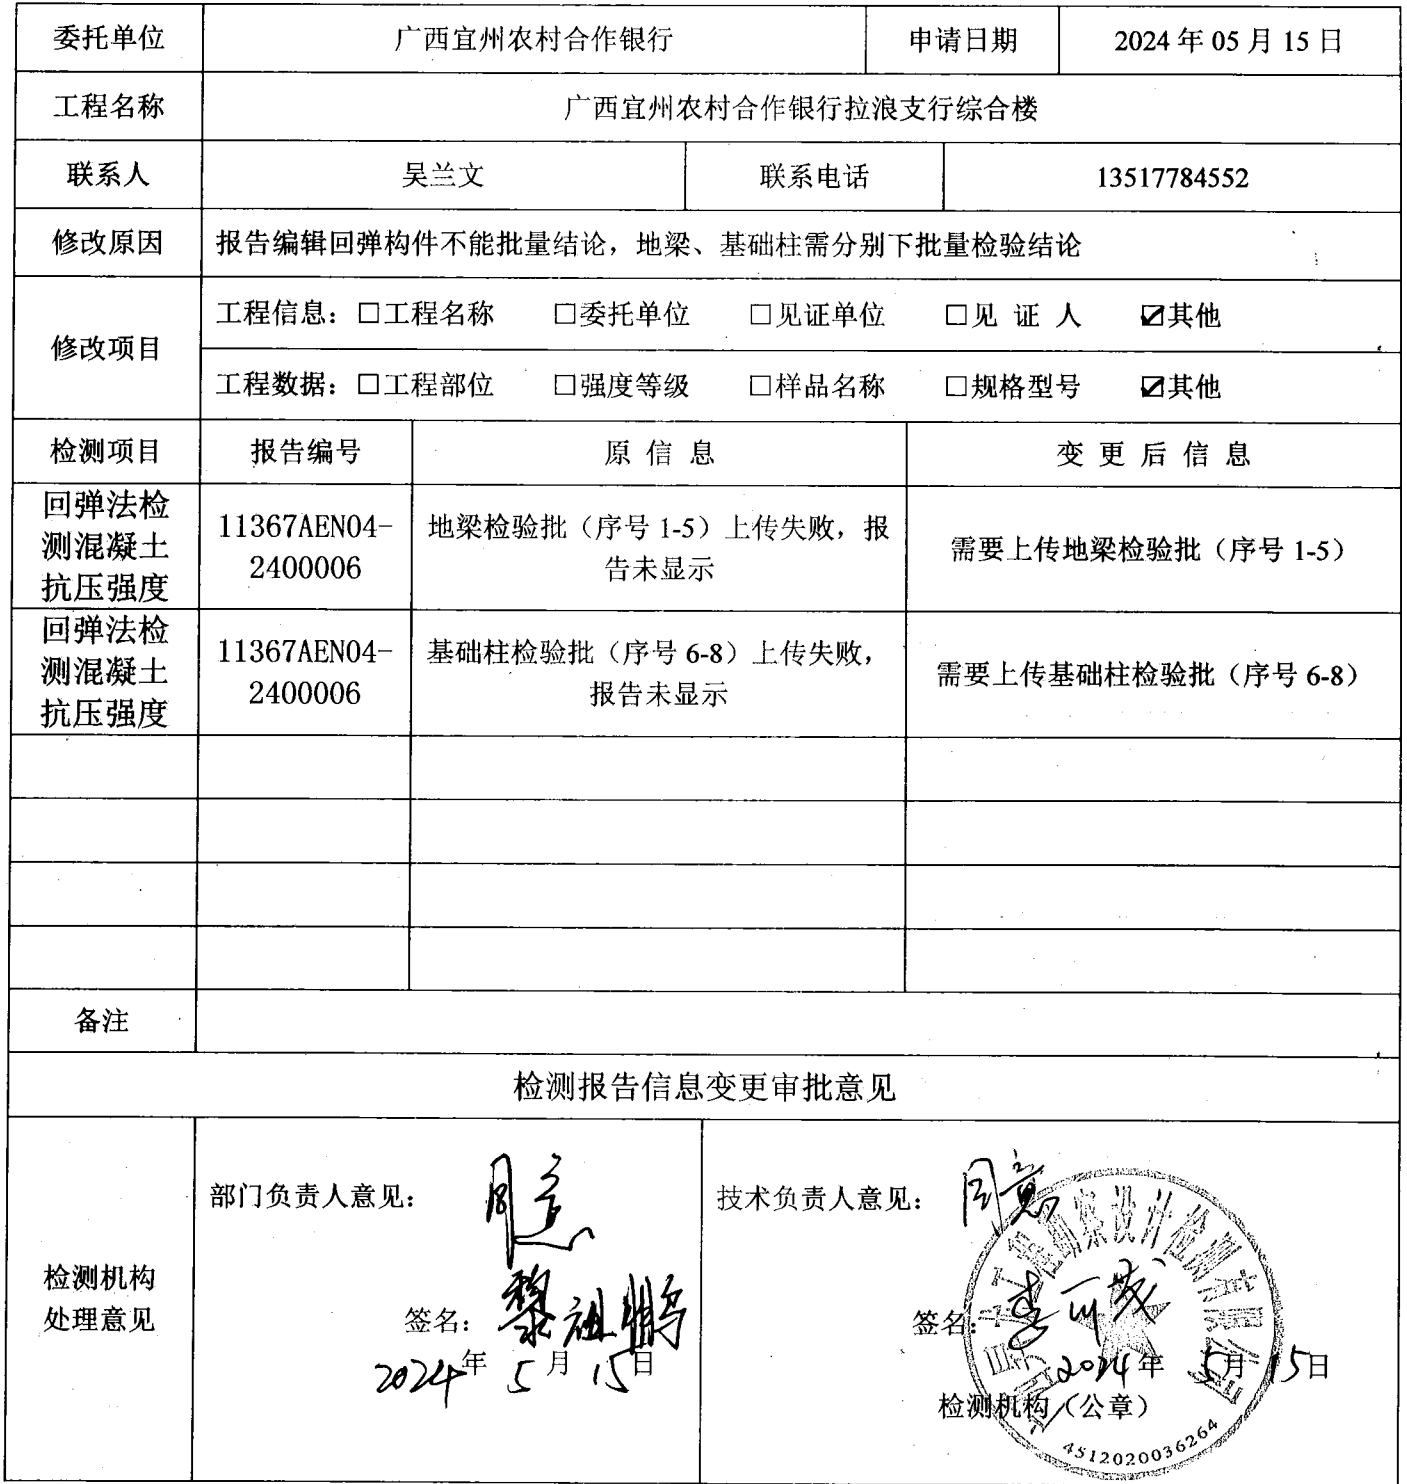 委托单位 广西宜州农村合作银行 申请日期 2024年05月15日
工程名称 广西宜州农村合作银行拉浪支行综合楼
联系人 吴兰文 联系电话 13517784552
修改原因 报告编辑回弹构件不能批量结论，地梁、基础柱需分别下批量检验结论
修改项目
工程信息：□工程名称 □委托单位 □见证单位 □见 证 人 ☑其他
工程数据：□工程部位 □强度等级 □样品名称 □规格型号 ☑其他
检测项目 报告编号 原 信 息 变 更 后 信 息
回弹法检
测混凝土
抗压强度
11367AEN04-
2400006
地梁检验批（序号 1-5）上传失败，报
告未显示
需要上传地梁检验批（序号 1-5）
回弹法检
测混凝土
抗压强度
11367AEN04-
2400006
基础柱检验批（序号 6-8）上传失败，
报告未显示
需要上传基础柱检验批（序号 6-8）
备注
检测报告信息变更审批意见
检测机构
处理意见
部门负责人意见： 同意
签名：黎祖鹏
2024年 5月 15日
技术负责人意见： 同意
签名：
2024年 5月 15日
检测机构（公章）
工程勘察设计检测有限公司
4512020036264